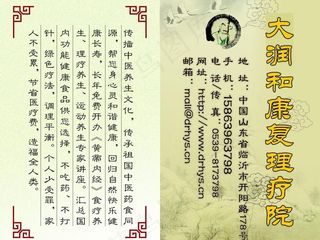 大润和康复理疗院
地址：中国山东省临沂市开阳路178号
手机：15863963798
电话/传真：0539-8173798
网址：http://www.drhys.cn
邮箱：mail@drhys.cn
传播中医养生文化，传承祖国中医药同
源，帮您身心灵和谐健康，回归自然快乐健
康长寿，长年免费开办《黄帝内经》食疗养
生，理疗养生，运动养生专家讲座。汇总国
内功能健康食品供您选择，不吃药、不打
针，绿色疗法，调理平衡。个人少受罪，家
人不受累，节省医疗费，造福全人类。